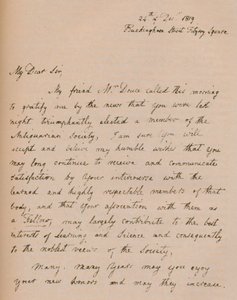 24th of Decr 1819
Buckingham Street Fitzroy Square
My Dear Sir,
My friend Mr Douce called this morning
to gratify me by the news that you were last
night triumphantly elected a member of the
Antiquarian Society. I am sure you will
accept and believe my humble wishes that you
may long continue to receive and communicate
satisfaction by your intercourse with the
learned and highly respectable members of that
body, and that your association with them as
a Fellow, may largely contribute to the best
interests of Learning and Science and consequently
to the noblest views of the Society.
Many, many years may you enjoy
your new honors and may they increase